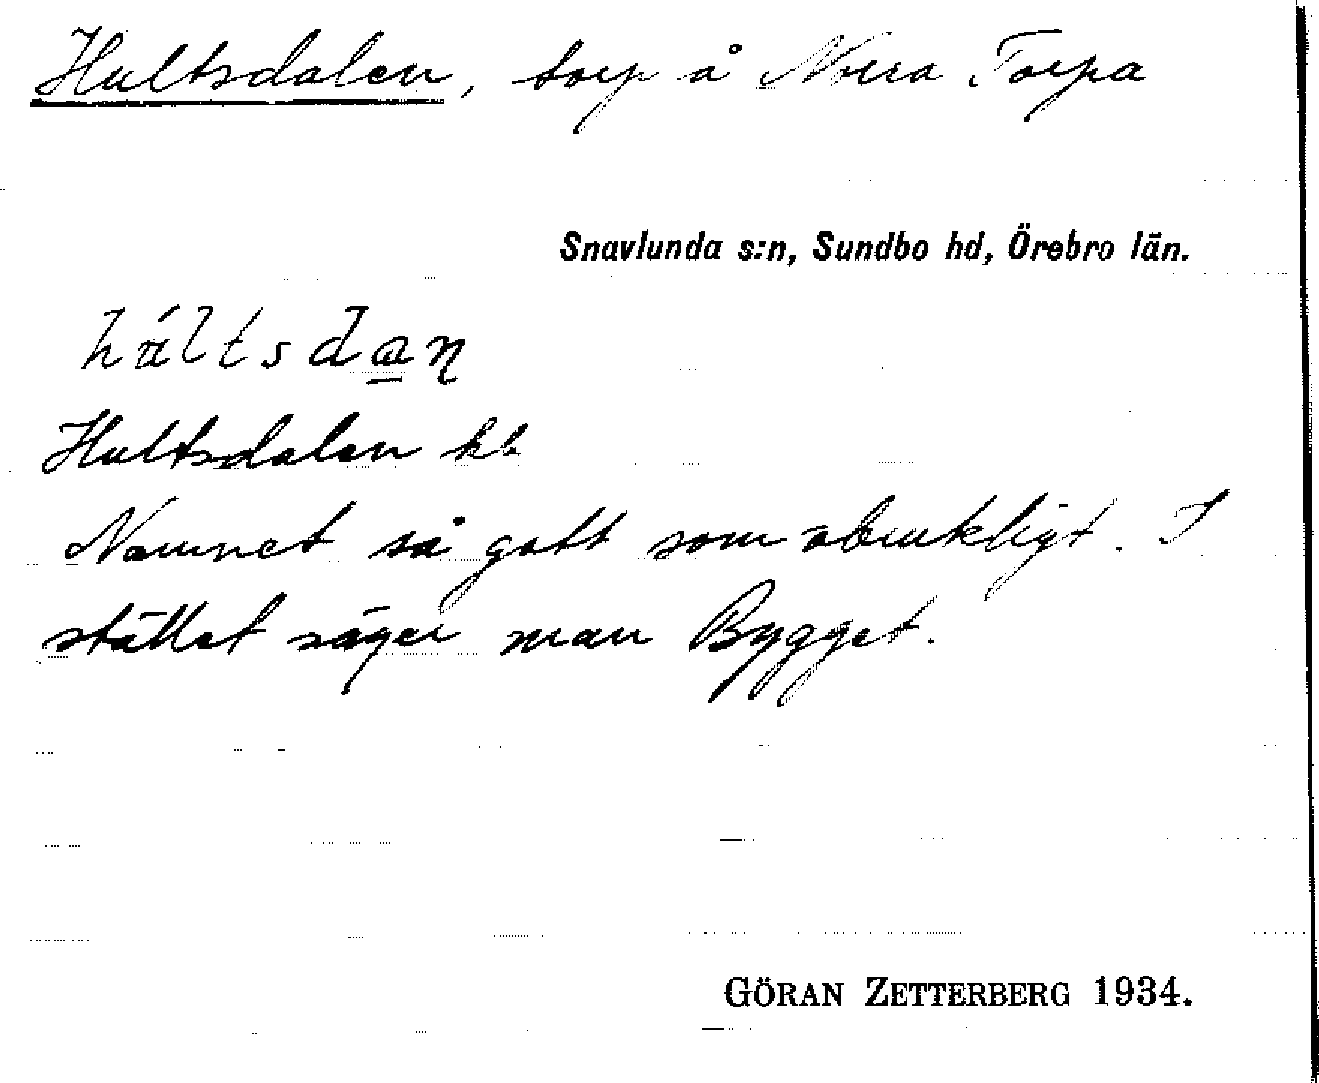 Hultsdalen, torp å Norra Torpa
Snavlunda s:n, Sundbo hd, Örebro län.
Hultsdalen kb
Namnet så gott som obrukligt. I
stället säger man Bygget.
GÖRAN ZETTERBERG 1934.